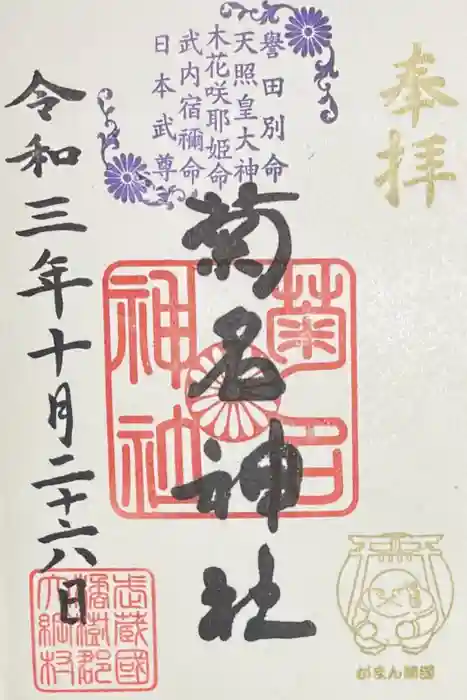 奉拝
譽田別命
天照皇大神
木花咲耶姫命
武内宿禰命
日本武尊
菊名神社
菊名
神社
令和三年十月二十六日
武蔵國
橘樹郡
大綱村
がまん様